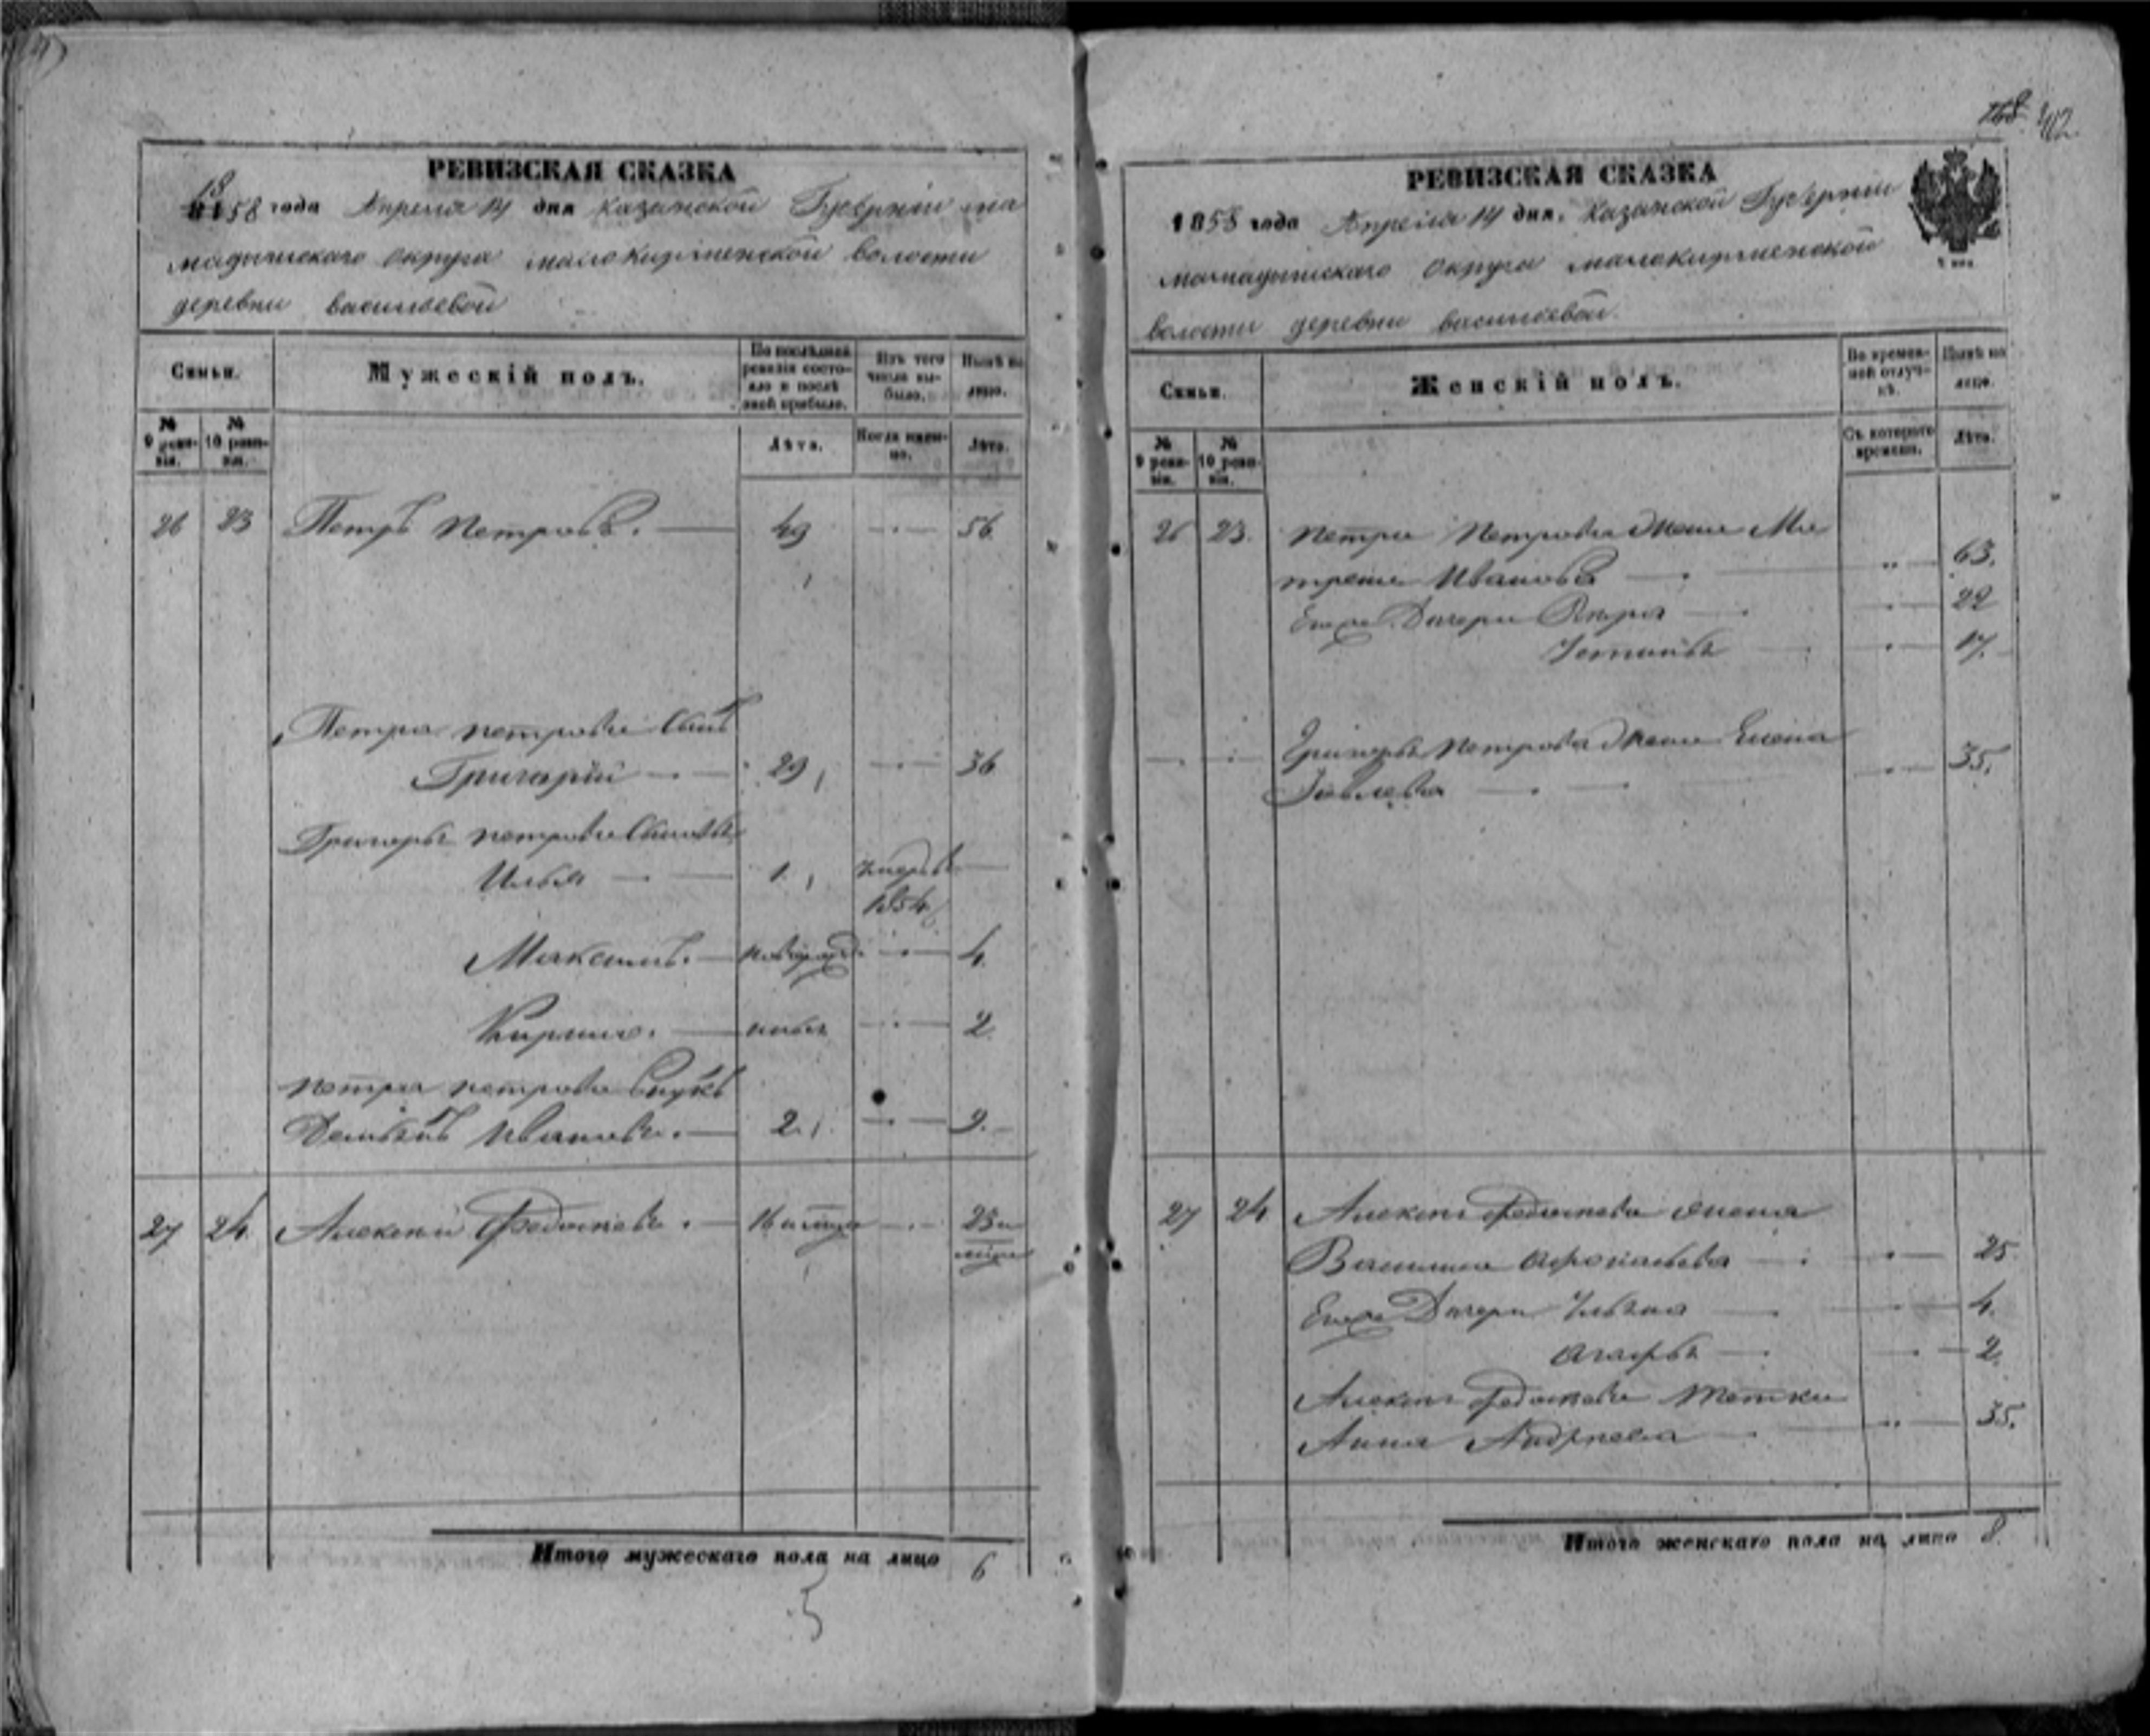 168 402.
РЕВИЗСКАЯ СКАЗКА
1858 года Апреля 14 дня Казанской Губернiи ма
мадышскаго округа малокирменской волости
деревни васильевой
Семьи.
Мужескiй полъ.
По послѣдней ревизiи состояло и послѣ оной прибыло.
Изъ того числа выбыло.
Нынѣ на лицо.
№ 9 ревизiи.
№ 10 ревизiи.
Лѣта.
Когда имянно.
Лѣта.
26 23 Петръ Петровъ. 49 56
Петра петрова Сынъ
Григорiй 29 36
Григорья петрова Сыновья
Илья 1 умеръ
1854
Максимъ. новорожд 4
Кирило. новъ 2
петра петрова Внукъ
Иванова. 2 9
27 24 Алексей 16 25 и
Итого мужескаго пола на лицо 6
5
РЕВИЗСКАЯ СКАЗКА
1858 года Апреля 14 дня. Казанской Губернiи
мамадышскаго округа малокирменской
волости деревни васильевой
Семьи.
Женскiй полъ.
Во временной отлучкѣ.
Нынѣ на лицо.
№ 9 ревизiи.
№ 10 ревизiи.
Съ котораго времени.
Лѣта.
26 23. петра Петрова Жена Ма
трена Иванова 63.
Ево Дочери 22
Устинья 17.
Григорья Петрова Жена Елена
35.
27 24 Алексея жена
Василиса Афонасьева 25
Ево Дочери 4.
Агафья 2
Алексея тетка
Анна Андреева 35.
Итого женскаго пола на лицо 8.